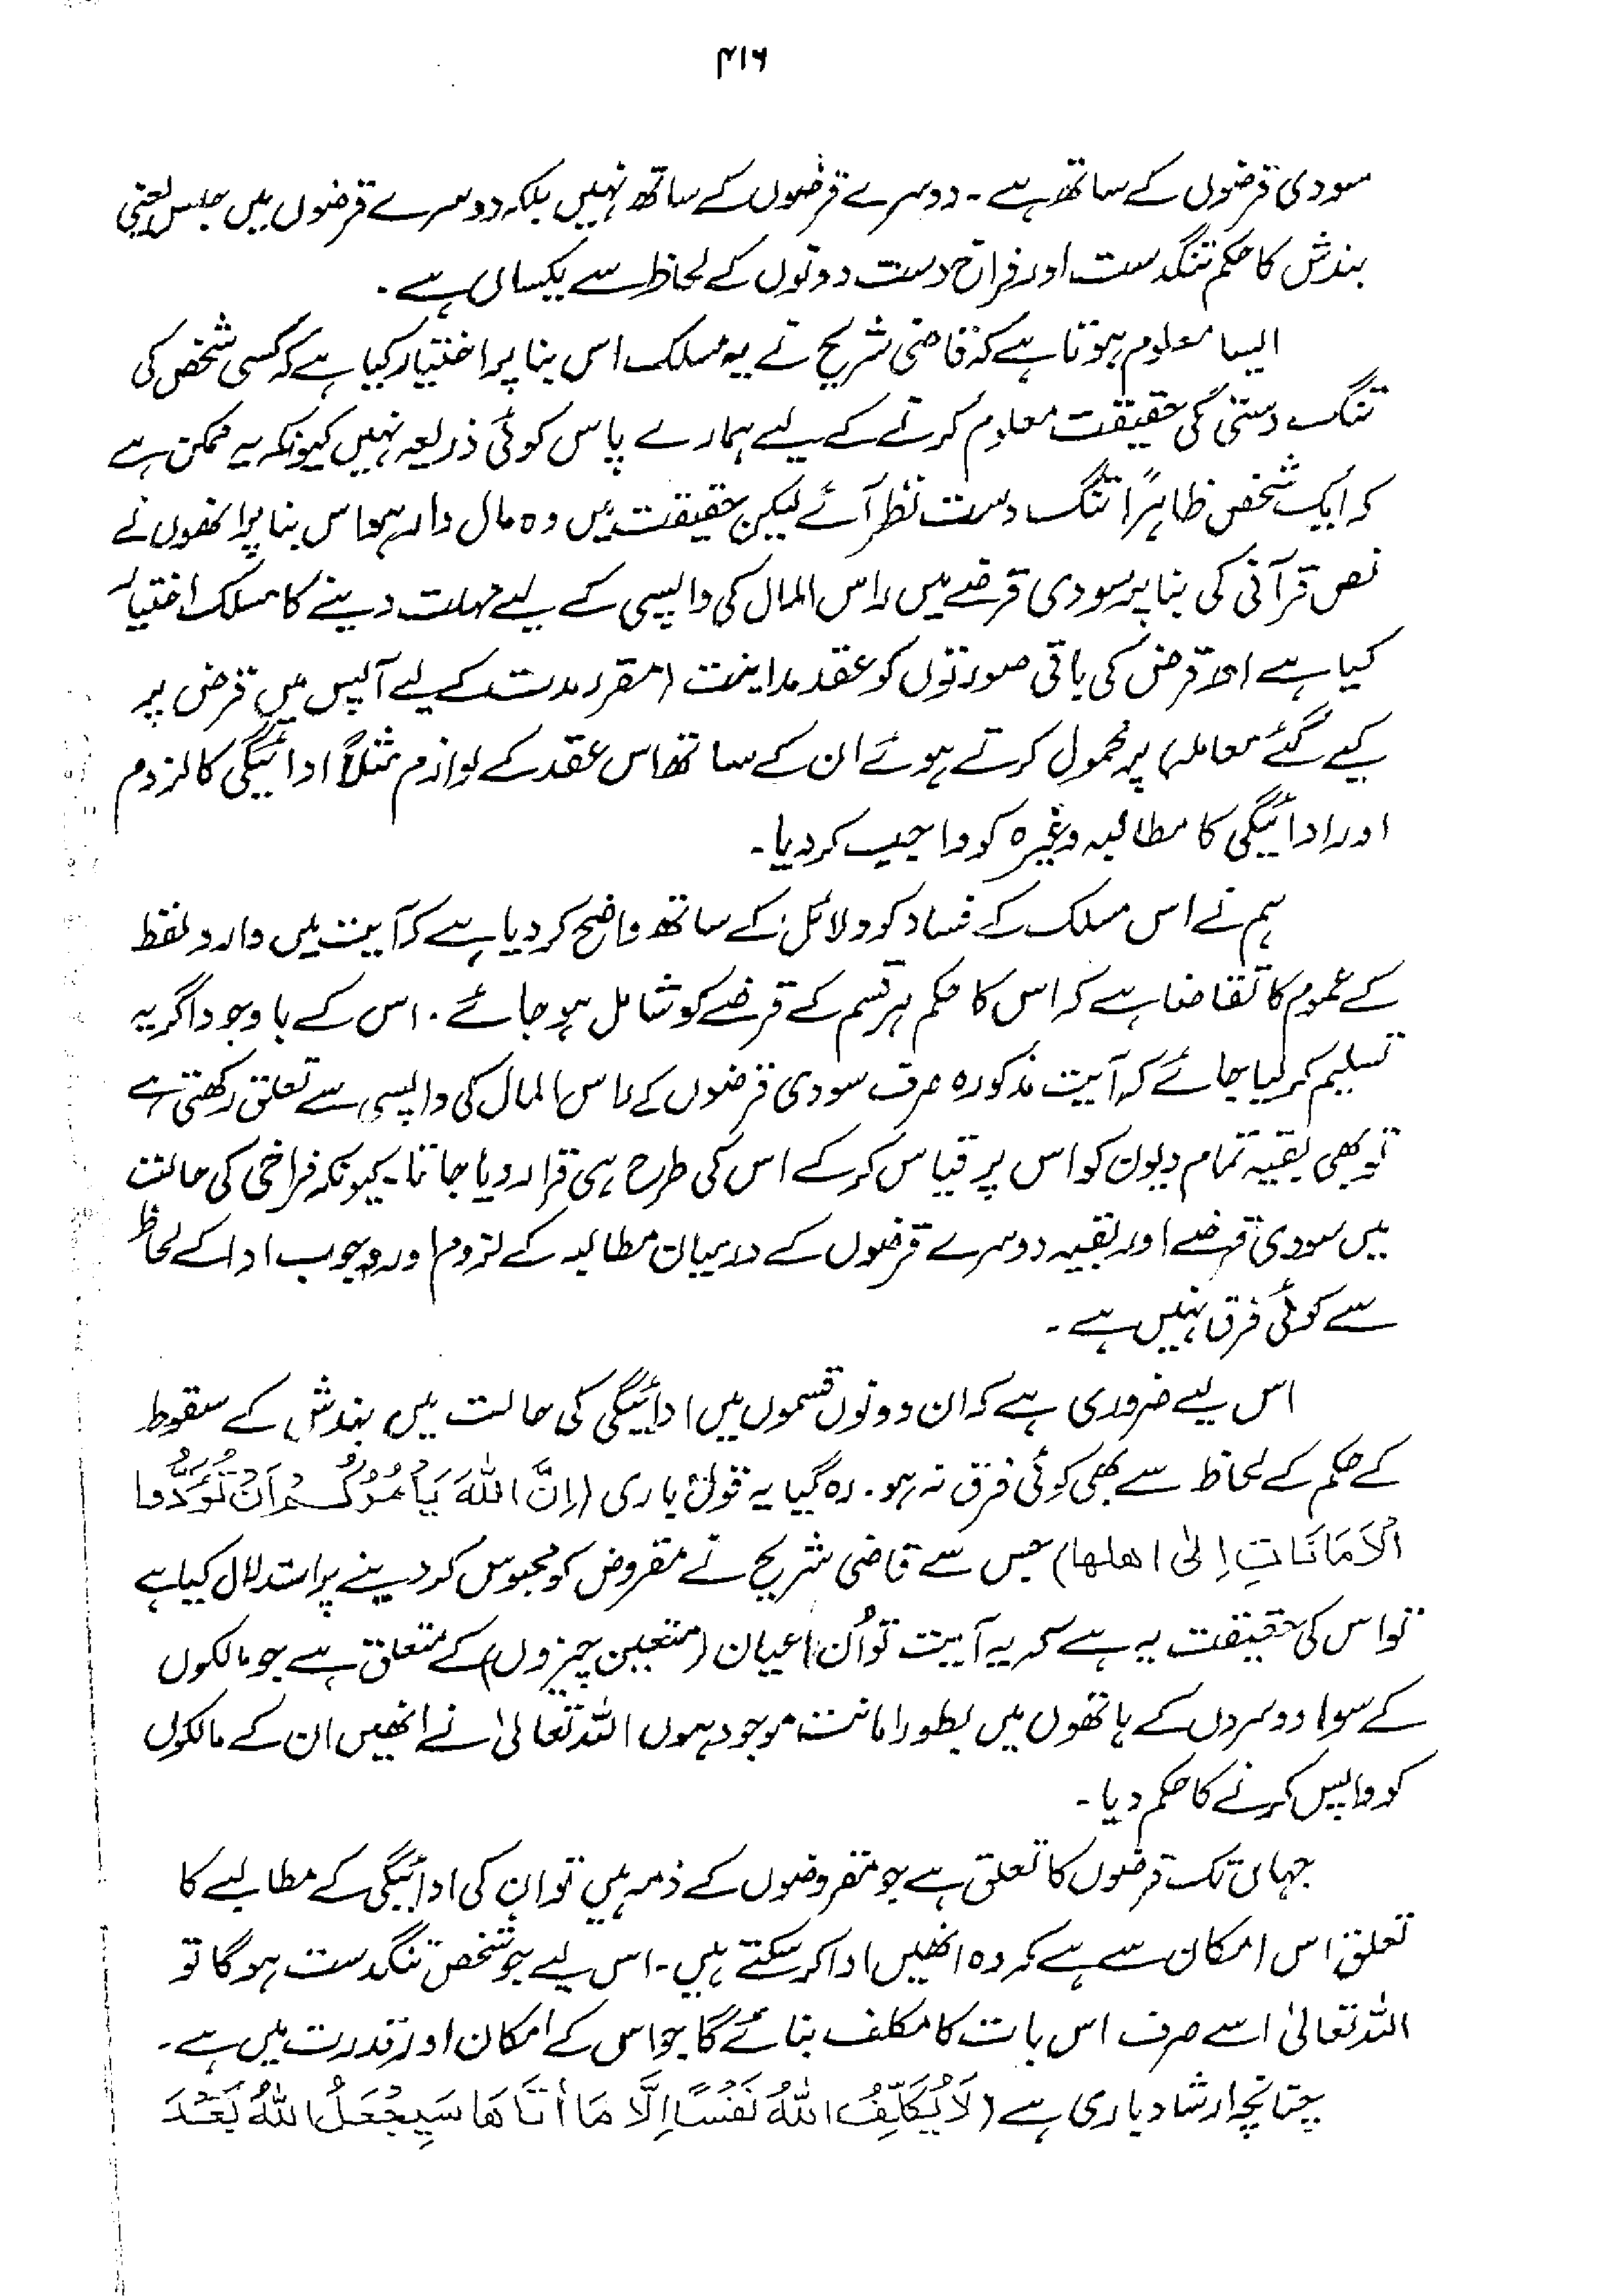 ۴۱۶
سودی قرضوں کے ساتھ ہے۔ دوسرے قرضوں کے ساتھ نہیں بلکہ دوسرے قرضوں میں حبس یعنی
بندش کا حکم تنگدست اور فراخ دست دونوں کے لحاظ سے یکساں ہے۔
ایسا معلوم ہوتا ہے کہ قاضی شریح نے یہ مسلک اس بنا پر اختیار کیا ہے کہ کسی شخص کی
تنگ دستی کی حقیقت معلوم کرنے کے لیے ہمارے پاس کوئی ذریعہ نہیں کیونکہ یہ ممکن ہے
کہ ایک شخص ظاہراً تنگ دست نظر آئے لیکن حقیقت میں وہ مال دار ہو اس بنا پر انھوں نے
نص قرآنی کی بنا پر سودی قرضے میں راس المال کی واپسی کے لیے مہلت دینے کا مسلک اختیار
کیا ہے اور قرض کی باقی صورتوں کو عقد مداینت (مقرر مدت کے لیے آپس میں قرض پر
کیے گئے معاملہ) پر محمول کرتے ہوئے ان کے ساتھ اس عقد کے لوازم مثلاً ادائیگی کا لزوم
اور ادائیگی کا مطالبہ وغیرہ کو واجب کر دیا۔
ہم نے اس مسلک کے فساد کو دلائل کے ساتھ واضح کر دیا ہے کہ آیت میں وارد لفظ
کے عموم کا تقاضا ہے کہ اس کا حکم ہر قسم کے قرضے کو شامل ہو جائے۔ اس کے باوجود اگر یہ
تسلیم کر لیا جائے کہ آیت مذکورہ صرف سودی قرضوں کے راس المال کی واپسی سے تعلق رکھتی ہے
تو بھی بقیہ تمام دیون کو اس پر قیاس کرکے اس کی طرح ہی قرار دیا جاتا۔ کیونکہ فراخی کی حالت
میں سودی قرضے اور بقیہ دوسرے قرضوں کے درمیان مطالبہ کے لزوم اور وجوب ادا کے لحاظ
سے کوئی فرق نہیں ہے۔
اس لیے ضروری ہے کہ ان دونوں قسموں میں ادائیگی کی حالت میں بندش کے سقوط
کے حکم کے لحاظ سے بھی کوئی فرق نہ ہو۔ رہ گیا یہ قول باری (اِنَّ اللهَ یَأْمُرُكُمْ اَنْ تُؤَدُّوا
الْاَمَانَاتِ اِلیٰ اهلها) جس سے قاضی شریح نے مقروض کو محبوس کر دینے پر استدلال کیا ہے
تو اس کی حقیقت یہ ہے کہ یہ آیت تو اُن اعیان (متعین چیزوں) کے متعلق ہے جو مالکوں
کے سوا دوسروں کے ہاتھوں میں بطور امانت موجود ہوں اللہ تعالیٰ نے انھیں ان کے مالکوں
کو واپس کرنے کا حکم دیا۔
جہاں تک قرضوں کا تعلق ہے جو مقروضوں کے ذمہ ہیں تو ان کی ادائیگی کے مطالبے کا
تعلق اس امکان سے ہے کہ وہ انھیں ادا کر سکتے ہیں۔ اس لیے جو شخص تنگدست ہوگا تو
اللہ تعالیٰ اسے صرف اس بات کا مکلف بنائے گا جو اس کے امکان اور قدرت میں ہے۔
چنانچہ ارشاد باری ہے (لَا یُکَلِّفُ اللهُ نَفْسًا اِلَّا مَا أٰتَاهَا سَیَجْعَلُ اللهُ بَعْدَ